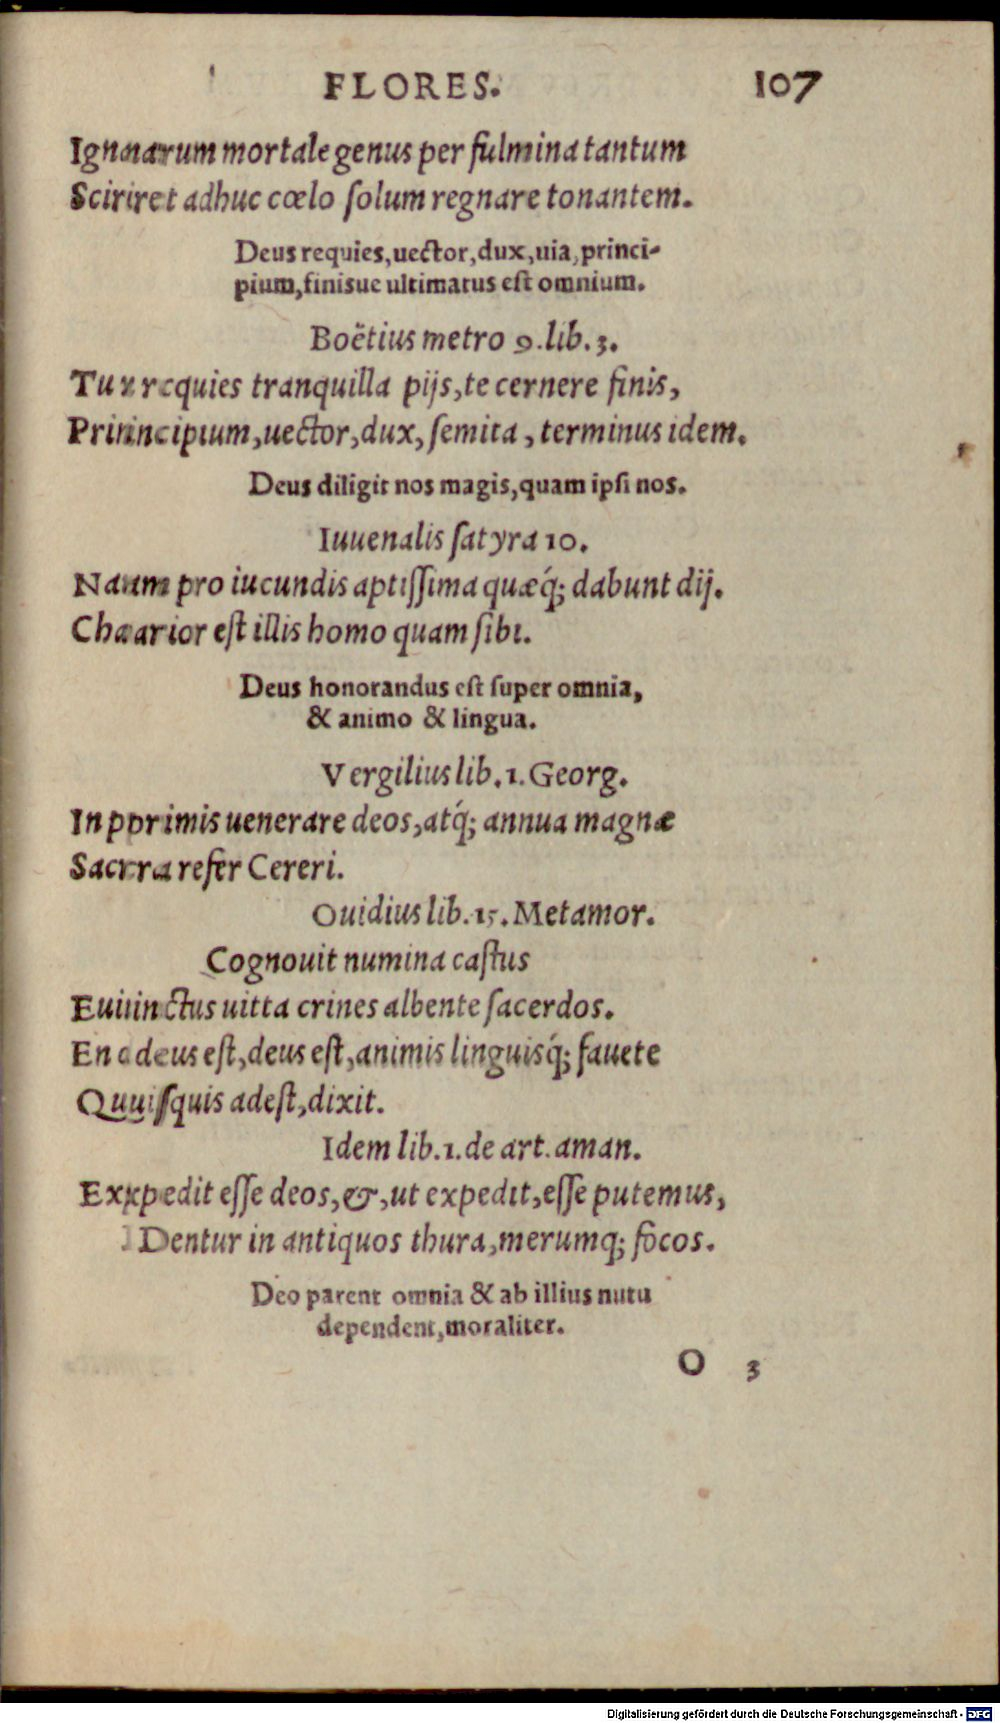 FLORES. 107
Ignarum mortale genus per fulmina tantum
Sciret adhuc cœlo ſolum regnare tonantem.
Deus requies,uector,dux,uia,princi-
pium,finisue ultimatus eſt omnium.
Boëtius metro 9.lib.3.
Tu requies tranquilla pijs,te cernere finis,
Principium,uector,dux,ſemita,terminus idem.
Deus diligit nos magis,quam ipſi nos.
Iuuenalis ſatyra 10.
Nam pro iucundis aptiſſima quæq́; dabunt dij.
Charior eſt illis homo quam ſibi.
Deus honorandus eſt ſuper omnia,
& animo & lingua.
Vergilius lib.1.Georg.
In primis uenerare deos,atq́; annua magnæ
Sacra refer Cereri.
Ouidius lib.15.Metamor.
Cognouit numina caſtus
Euinctus uitta crines albente ſacerdos.
En deus eſt,deus eſt,animis linguisq́; fauete
Quiſquis adeſt,dixit.
Idem lib.1.de art.aman.
Expedit eſſe deos,&,ut expedit,eſſe putemus,
Dentur in antiquos thura,merumq; focos.
Deo parent omnia & ab illius nutu
dependent,moraliter.
O 3
Digitalisierung gefördert durch die Deutsche Forschungsgemeinschaft - DFG